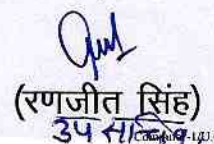 (रणजीत सिंह)
उप सचिव